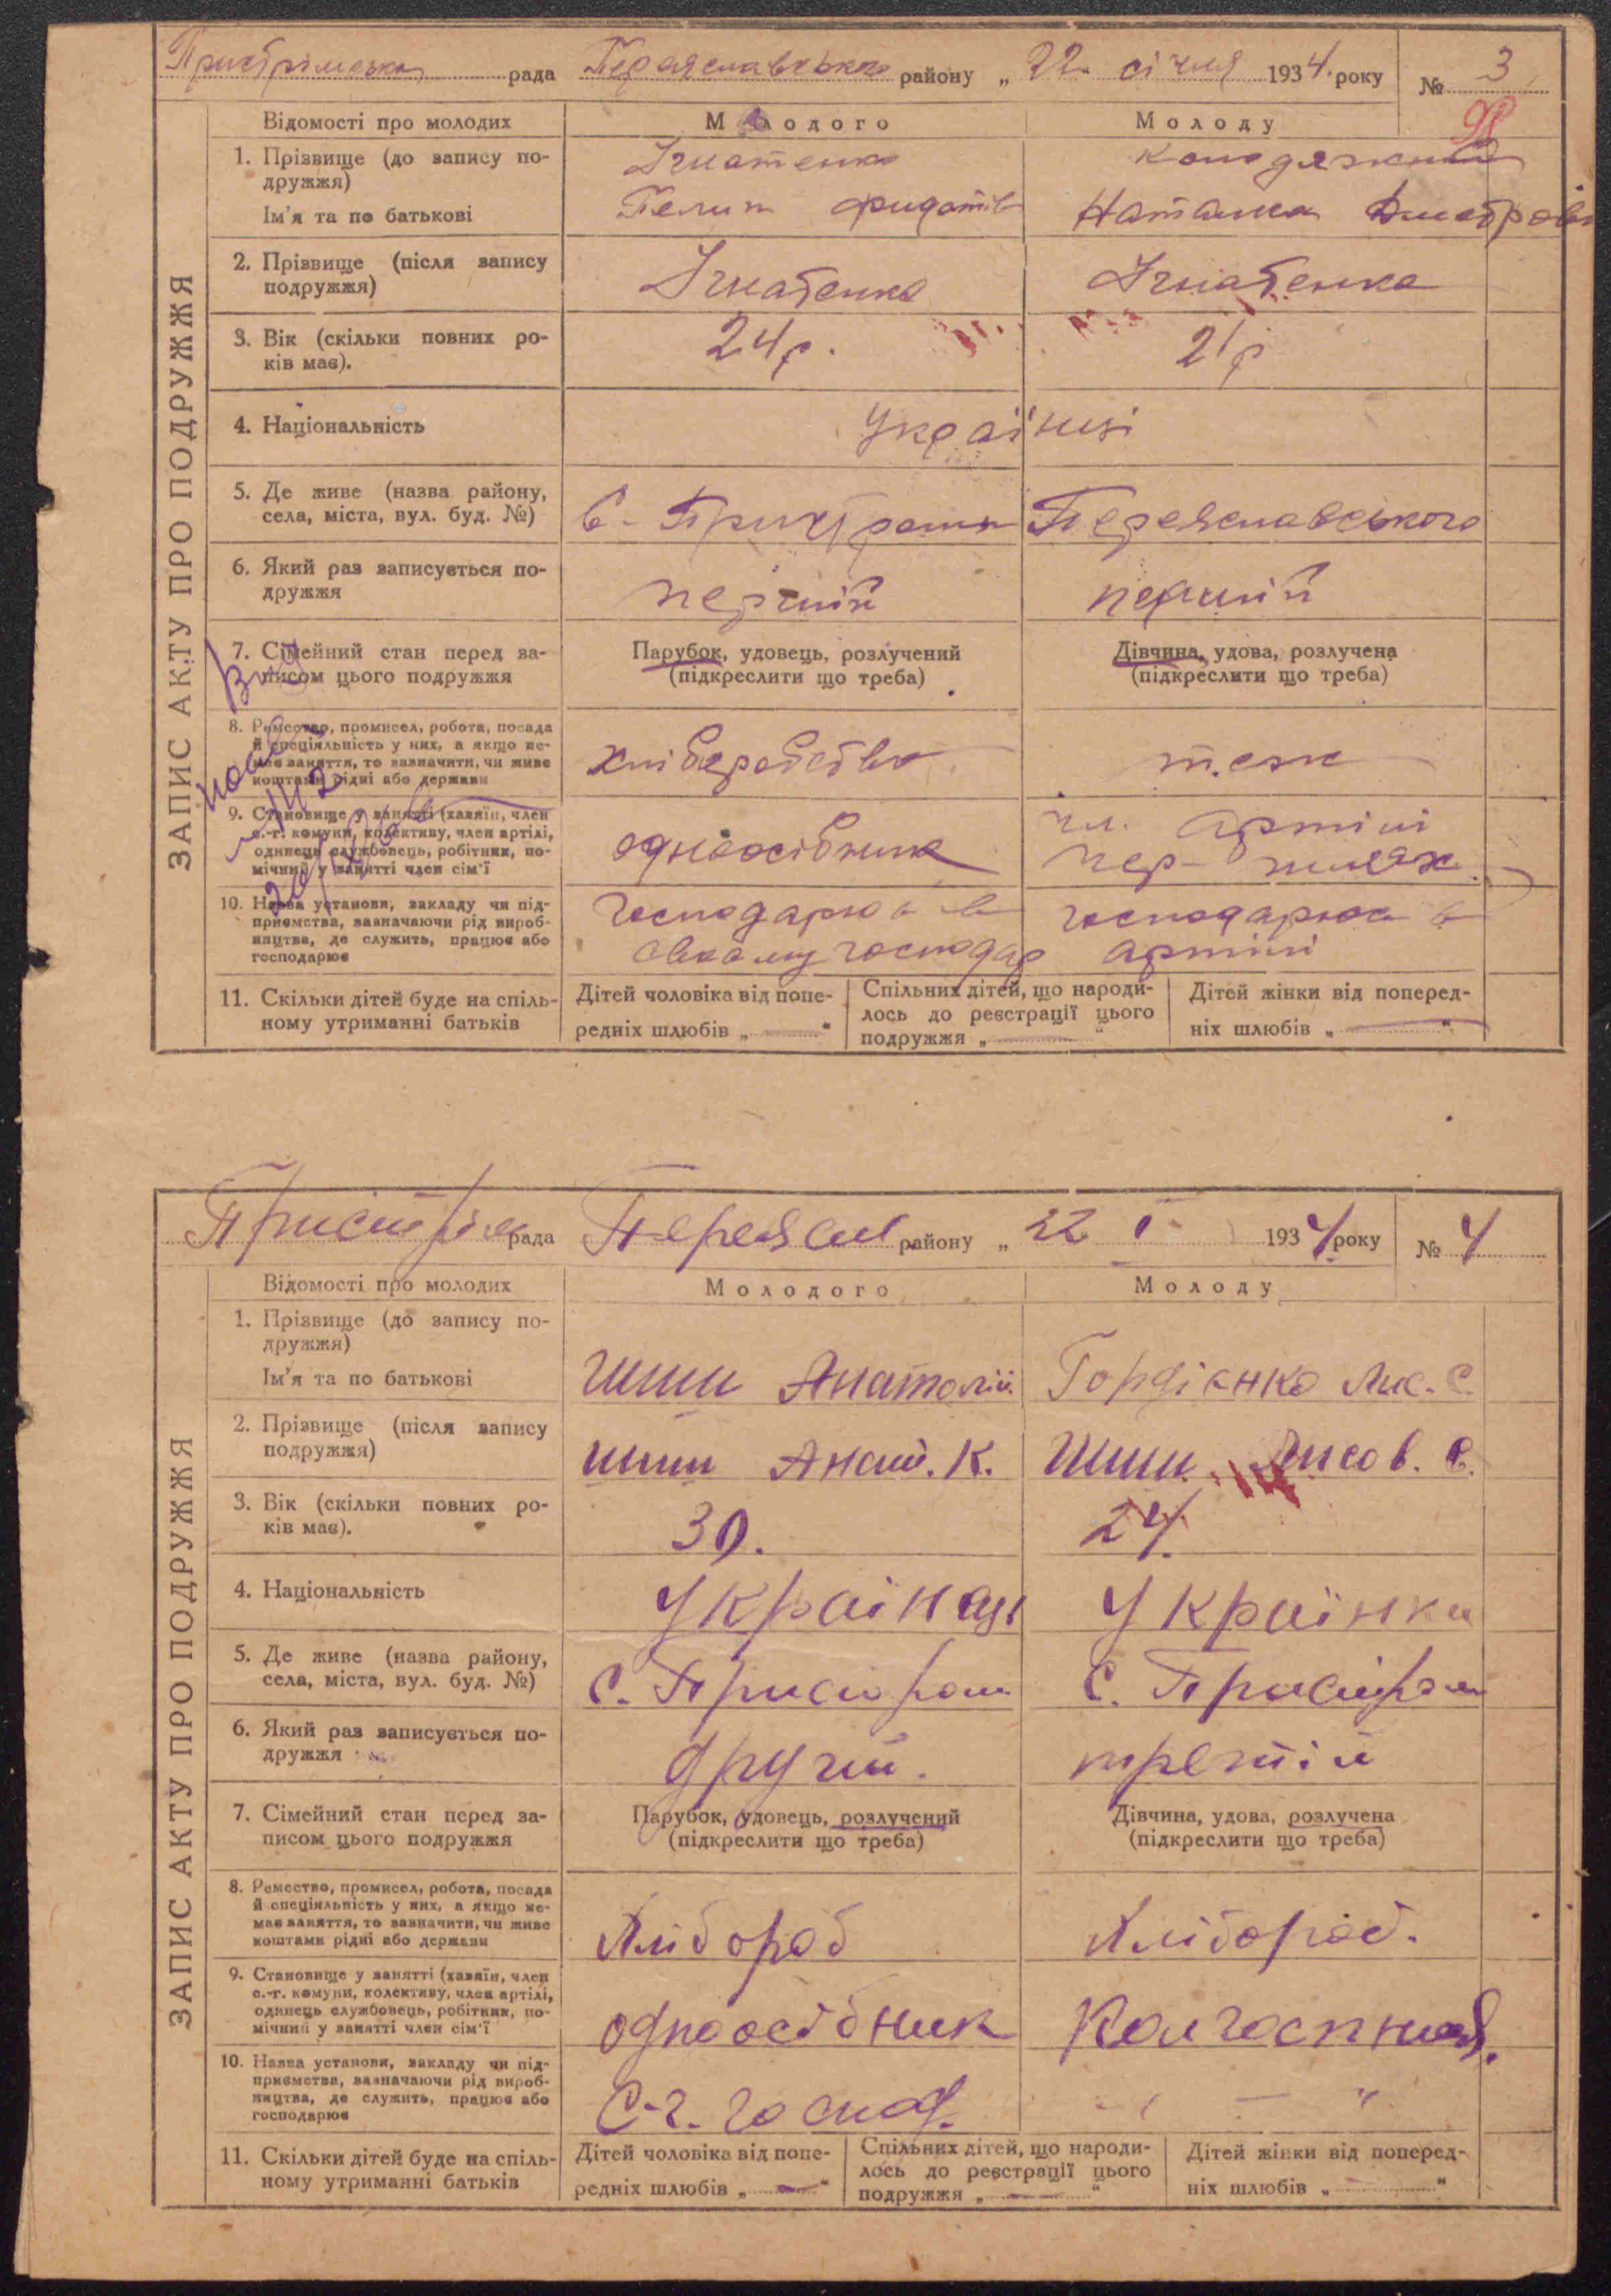 рада Переяславського району „ 22 січня 1934 року № 3
Відомості про молодих Молодого Молоду
1. Прізвище (до запису по-
дружжя)
Ігнатенко
Ім'я та по батькові
Наталка Дмитрові
2. Прізвище (після запису
подружжя)
Ігнатенко Ігнатенко
3. Вік (скільки повних ро-
ків має).
24 р. 21 р
4. Національність
Українці
5. Де живе (назва району,
села, міста, вул. буд. №)
с. Переяславського
6. Який раз записується по-
дружжя
перший перший
7. Сімейний стан перед за-
писом цього подружжя
Парубок, удовець, розлучений
(підкреслити що треба)
Дівчина, удова, розлучена
(підкреслити що треба)
8. Ремество, промисел, робота, посада
й спеціяльність у них, а якщо не-
має заняття, то зазначити, чи живе
коштами рідні або держави
хліборобство теж
9. Становище у занятті (хазяїн, член
с.-г. комуни, колективу, член артілі,
одинець службовець, робітник, по-
мічний у занятті член сім'ї
одноосібник
чл. артілі
10. Назва установи, закладу чи під-
приємства, зазначаючи рід вироб-
ництва, де служить, працює або
господарює
господарює в
своєму господар
господарює в
артілі
11. Скільки дітей буде на спіль-
ному утриманні батьків
Дітей чоловіка від попе-
редніх шлюбів „ — “
Спільних дітей, що народи-
лось до реєстрації цього
подружжя „ — “
Дітей жінки від поперед-
ніх шлюбів „ — “
ЗАПИС АКТУ ПРО ПОДРУЖЖЯ
рада Переясл району „ 22 I 1934 року № 4
Відомості про молодих Молодого Молоду
1. Прізвище (до запису по-
дружжя)
Ім'я та по батькові
Шиш Анатолій Гордієнко Лис. С.
2. Прізвище (після запису
подружжя)
Шиш Анат. К. Шиш Лисов. С.
3. Вік (скільки повних ро-
ків має).
30. 24.
4. Національність
Українець Українка
5. Де живе (назва району,
села, міста, вул. буд. №)
с. Пристром с. Пристром
6. Який раз записується по-
дружжя
другий. третій
7. Сімейний стан перед за-
писом цього подружжя
Парубок, удовець, розлучений
(підкреслити що треба)
Дівчина, удова, розлучена
(підкреслити що треба)
8. Ремество, промисел, робота, посада
й спеціяльність у них, а якщо не-
має заняття, то зазначити, чи живе
коштами рідні або держави
Хлібороб Хлібороб.
9. Становище у занятті (хазяїн, член
с.-г. комуни, колективу, член артілі,
одинець службовець, робітник, по-
мічний у занятті член сім'ї
одноосібник
10. Назва установи, закладу чи під-
приємства, зазначаючи рід вироб-
ництва, де служить, працює або
господарює
С-г. господ. „ — “
11. Скільки дітей буде на спіль-
ному утриманні батьків
Дітей чоловіка від попе-
редніх шлюбів „ — “
Спільних дітей, що народи-
лось до реєстрації цього
подружжя „ — “
Дітей жінки від поперед-
ніх шлюбів „ — “
ЗАПИС АКТУ ПРО ПОДРУЖЖЯ